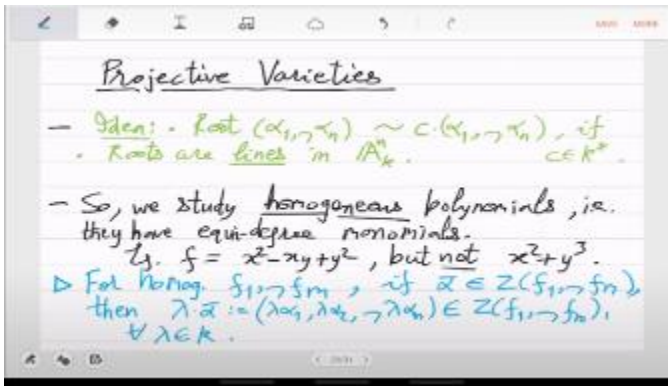 Projective Varieties
- Idea: · Root (α₁,⋯,αₙ) ~ c·(α₁,⋯,αₙ), if
· Roots are lines in 𝔸ₖⁿ. c∈k*.
- So, we study homogeneous polynomials, i.e.
they have equi-degree monomials.
Eg. f = x²-xy+y², but not x²+y³.
▷ For homog. f₁,⋯,fₘ, if ᾱ ∈ Z(f₁,⋯,fₘ),
then λ·ᾱ := (λα₁, λα₂,⋯,λαₙ) ∈ Z(f₁,⋯,fₘ),
∀ λ∈k.